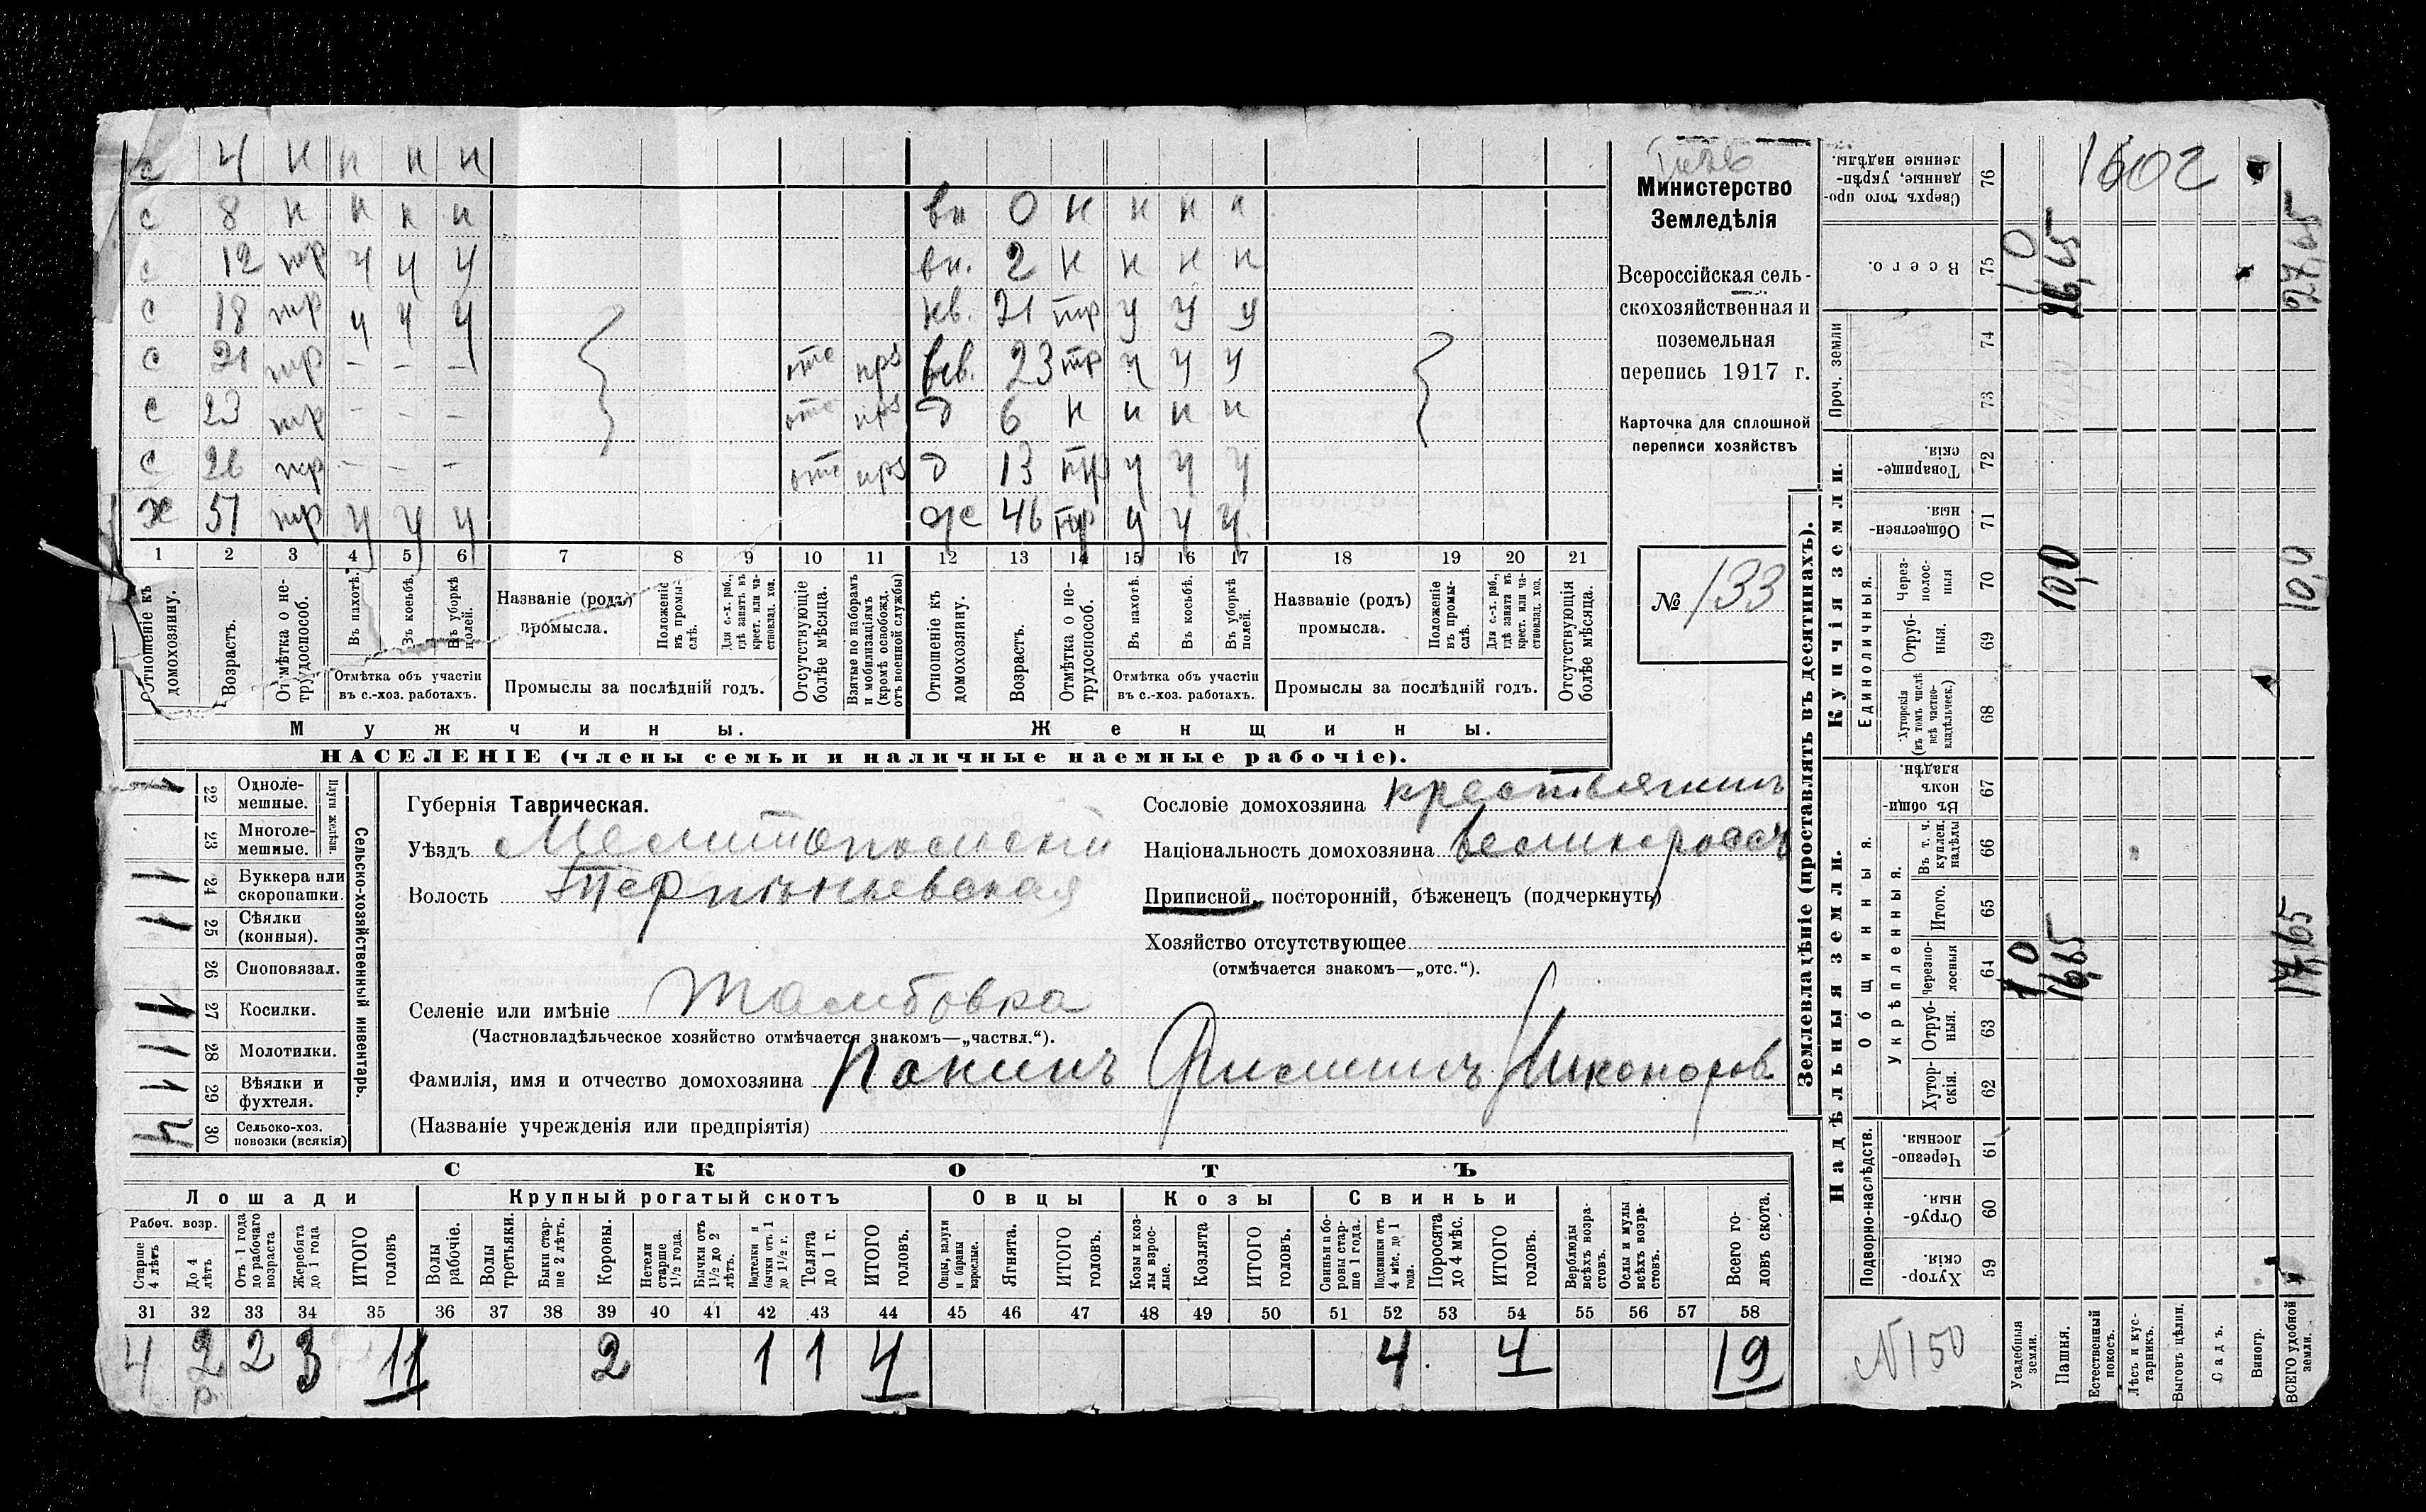 с 4 н н н н
с 8 н н н н вн 0 н н н н
с 12 тр у у у вн. 2 н н н н
с 18 тр у у у нв. 21 тр у у у
с 21 тр - - - отс прз нев. 23 тр у у у
с 23 тр - - - отс прз д 6 н н н н
с 26 тр - - - отс прз д 13 тр у у у
х 51 тр у у у ж 46 тр у у у
1 2 3 4 5 6 7 8 9 10 11 12 13 14 15 16 17 18 19 20 21
Отношеніе къ домохозяину.
Возрастъ.
Отмѣтка о нетрудоспособ.
Въ пахотѣ.
Въ косьбѣ.
Въ уборкѣ полей.
Отмѣтка объ участіи въ с.-хоз. работахъ.
Названіе (родъ) промысла.
Положеніе въ промыслѣ.
Для с.-х. раб., гдѣ занятъ въ крест. или частновлад. хоз.
Промыслы за послѣдній годъ.
Отсутствующіе болѣе мѣсяца.
Взятые по наборамъ и мобилизаціямъ (кромѣ освобожд. отъ военной службы)
Отношеніе къ домохозяину.
Возрастъ.
Отмѣтка о нетрудоспособ.
Въ пахотѣ.
Въ косьбѣ.
Въ уборкѣ полей.
Отмѣтка объ участіи въ с.-хоз. работахъ.
Названіе (родъ) промысла.
Положеніе въ промыслѣ.
Для с.-х. раб., гдѣ занята въ крест. или частновлад. хоз.
Промыслы за послѣдній годъ.
Отсутствующія болѣе мѣсяца.
Мужчины. Женщины.
НАСЕЛЕНІЕ (члены семьи и наличные наемные рабочіе).
Министерство
Земледѣлія
Всероссійская сель-
скохозяйственная и
поземельная
перепись 1917 г.
Карточка для сплошной
переписи хозяйствъ
№ 133
Сельско-хозяйственный инвентарь.
Плуги желѣзн.
1 22 Однолемешные.
23 Многолемешные.
1 24 Буккера или скоропашки.
1 25 Сѣялки (конныя).
26 Сноповязал.
1 27 Косилки.
1 28 Молотилки.
1 29 Вѣялки и фухтеля.
4 30 Сельско-хоз. повозки (всякія)
Губернія Таврическая.
Уѣздъ Мелитопольскій
Волость Терпѣньевская
Селеніе или имѣніе Тамбовка
(Частновладѣльческое хозяйство отмѣчается знакомъ—„частвл.“).
Фамилія, имя и отчество домохозяина Панинъ Филиппъ Никаноров
(Названіе учрежденія или предпріятія)
Сословіе домохозяина крестьянинъ
Національность домохозяина великороссъ
Приписной, посторонній, бѣженецъ (подчеркнуть)
Хозяйство отсутствующее
(отмѣчается знакомъ—„отс.“).
СКОТЪ
Лошади Крупный рогатый скотъ Овцы Козы Свиньи
Рабоч. возр.
Старше 4 лѣтъ
До 4 лѣтъ
Отъ 1 года до рабочаго возраста
Жеребята до 1 года
ИТОГО головъ
Волы рабочіе.
Волы третьяки.
Быки старше 2 лѣтъ.
Коровы.
Нетели старше 1½ года.
Бычки отъ 1½ до 2 лѣтъ.
Подтелки и бычки отъ 1 до 1½ г.
Телята до 1 г.
ИТОГО головъ.
Овцы, валухи и бараны взрослые.
Ягнята.
ИТОГО головъ.
Козы и козлы взрослые.
Козлята
ИТОГО головъ.
Свиньи и боровы старше 1 года.
Подсвинки отъ 4 мѣс. до 1 года.
Поросята до 4 мѣс.
ИТОГО головъ.
Верблюды всѣхъ возрастовъ.
Ослы и мулы всѣхъ возрастовъ.
Всего головъ скота.
31 32 33 34 35 36 37 38 39 40 41 42 43 44 45 46 47 48 49 50 51 52 53 54 55 56 57 58
4 2 2 3 11 2 1 1 4 4 4 19
р
Землевладѣніе (проставлять въ десятинахъ).
Надѣльныя земли. Купчія земли.
Подворно-наслѣдств.
Общинныя.
Укрѣпленныя.
Единоличныя.
Проч. земли
Хуторскія. 59
Отрубныя. 60
Черезполосныя. 61
Хуторскія. 62
Отрубныя. 63
Черезполосныя 64
Итого. 65
Въ т. ч. куплен. надѣлы 66
Въ общинномъ владѣн. 67
Хуторскія (въ томъ числѣ всѣ частновладѣльческ.) 68
Отрубныя. 69
Черезполосныя 70
Общественныя. 71
Товарищескія. 72
73
74
Всего. 75
Сверхъ того проданные, укрѣпленные надѣлы. 76
N 150
Усадебныя земли. 1,0 1,0
Пашня. 16,65 10,0 26,65
Естественный покосъ.
Лѣсъ и кустарникъ.
Выгонъ цѣлин.
Садъ.
Виногр.
ВСЕГО удобной земли. 17,65 10,0 27,65
1602